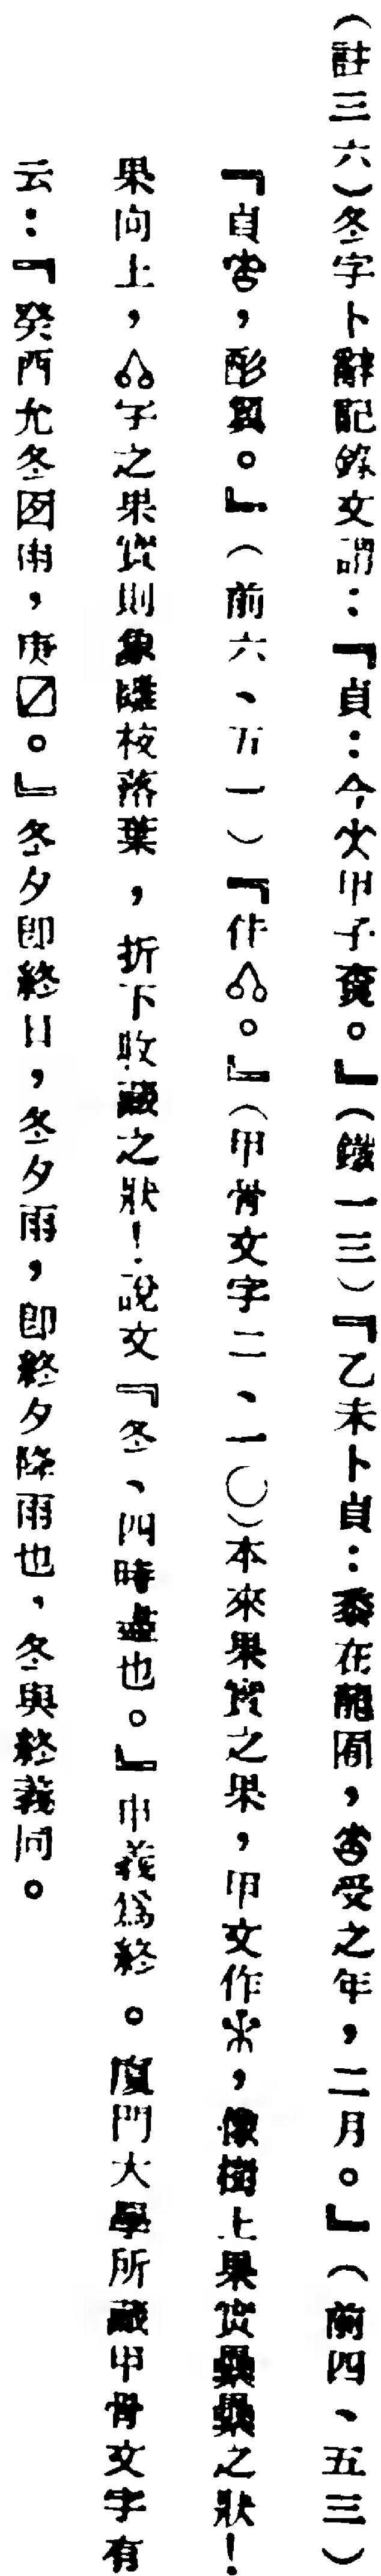 (註三六)冬字卜辭記錄文謂：『貞：今火甲子寶。』(鐵一三)『乙未卜貞：黍在龍囿，受之年，二月。』(前四、五三)
『貞，酚。』(前六、五一)『作。』(甲骨文字二、一〇)本來果實之果，甲文作，像樹上果實纍纍之狀！
果向上，字之果實則象離枝落葉，折下收藏之狀！說文『冬、四時盡也。』申義為終。廈門大學所藏甲骨文字有
云：『癸酉允冬囡雨，庚〼。』冬夕即終日，冬夕雨，即終夕降雨也，冬與終義同。